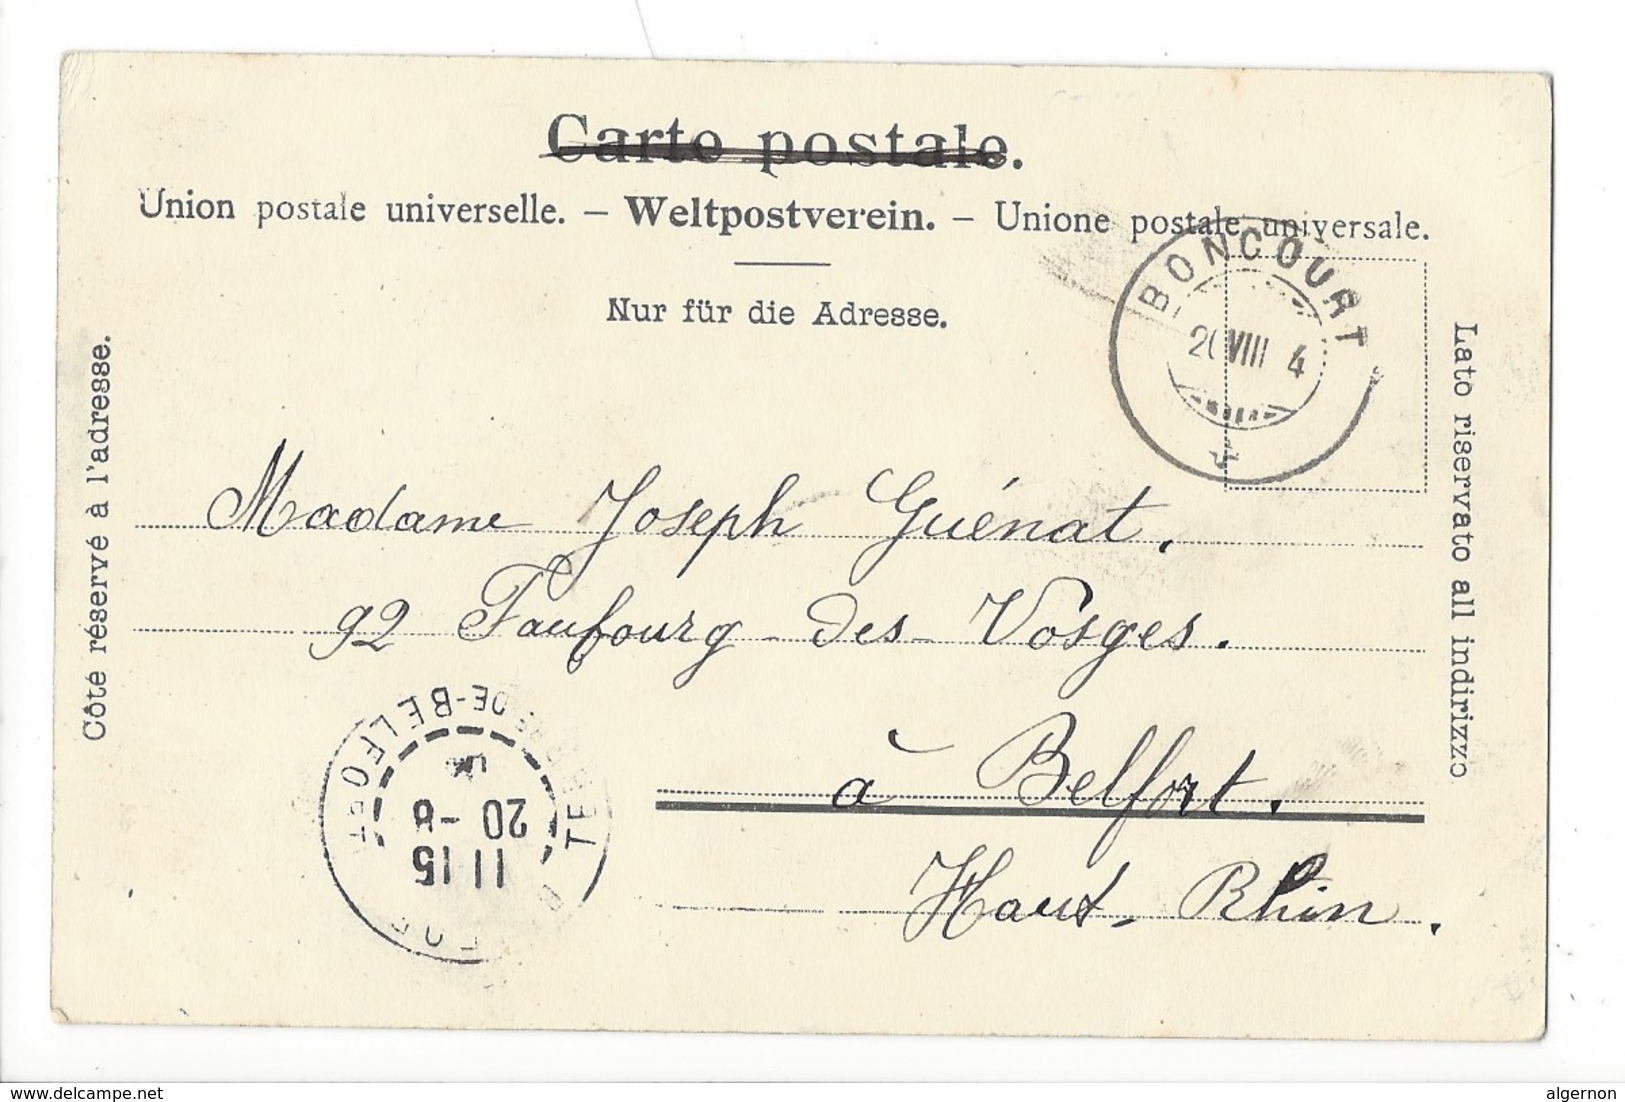 Carte postale.
Union postale universelle. – Weltpostverein. – Unione postale universale.
Nur für die Adresse.
Côté réservé à l'adresse.
Lato riservato all indirizzo
BONCOURT
20 VIII 4
Madame Joseph Guénat.
92 Faubourg-des-Vosges.
à Belfort.
Haut-Rhin.
DE-BELFORT
11 15
20 -8
delcampe.net
algernon